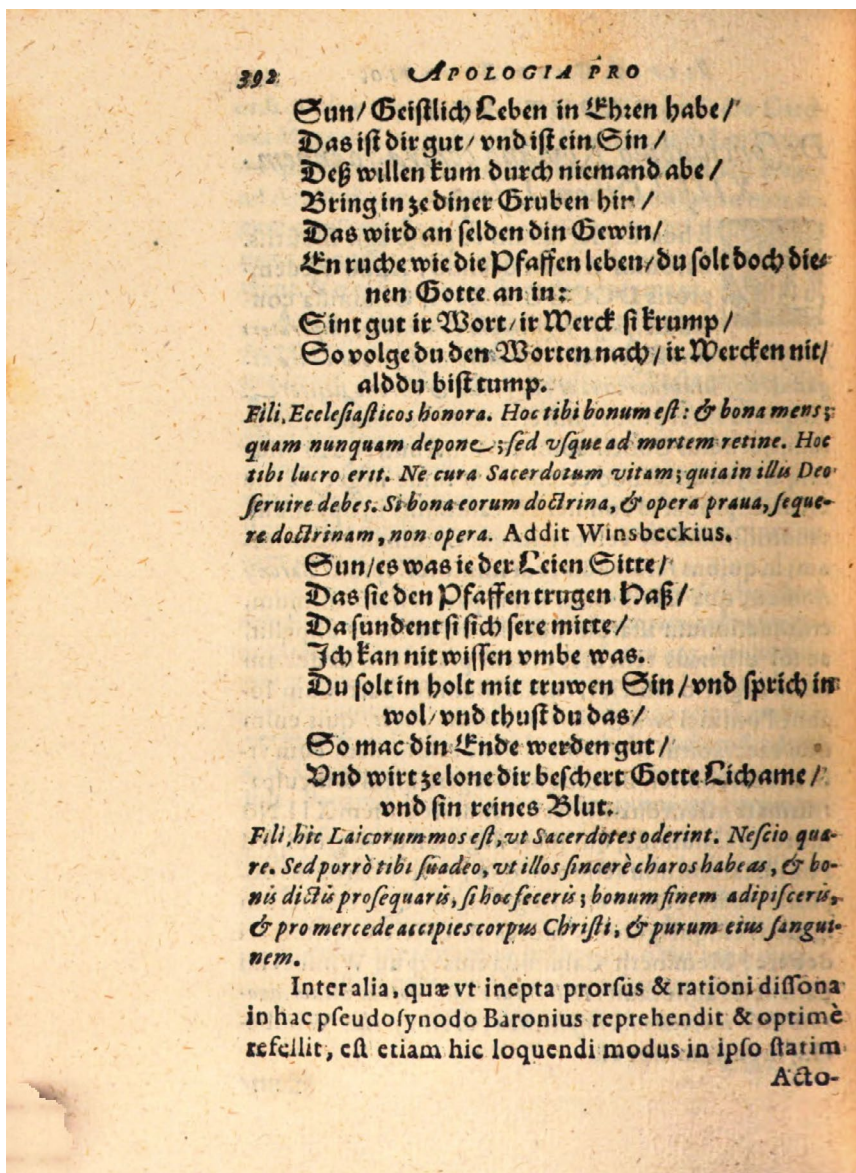 392 APOLOGIA PRO
Sun/ Geistlich Leben in Ehren habe/
Das ist dir gut/ vnd ist ein Sin/
Deß willen kum durch niemand abe/
Bring in ze diner Gruben hin/
Das wird an selden din Gewin/
En ruche wie die Pfaffen leben/ du solt doch die-
nen Gotte an in:
Sint gut ir Wort/ ir Werck si krump/
So volge du den Worten nach/ ir Wercken nit/
ald du bist tump.
Fili, Ecclesiasticos honora. Hoc tibi bonum est: & bona mens;
quam nunquam depone; sed vsque ad mortem retine. Hoc
tibi lucro erit. Ne cura Sacerdotum vitam; quia in illis Deo
seruire debes. Si bona eorum doctrina, & opera praua, seque-
re doctrinam, non opera. Addit Winsbeckius.
Sun/ es was ie der Leien Sitte/
Das sie den Pfaffen trugen Haß/
Da sundent si sich sere mitte/
Ich kan nit wissen vmbe was.
Du solt in holt mit truwen Sin/ vnd sprich in
wol/ vnd thust du das/
So mac din Ende werden gut/
Vnd wirt ze lone dir beschert Gotte Lichame/
vnd sin reines Blut.
Fili, hic Laicorum mos est, vt Sacerdotes oderint. Nescio qua-
re. Sed porrò tibi suadeo, vt illos sincerè charos habeas, & bo-
nis dictis prosequaris, si hoc feceris; bonum finem adipisceris,
& pro mercede accipies corpus Christi, & purum eius sangui-
nem.
Inter alia, quæ vt inepta prorsus & rationi dissona
in hac pseudosynodo Baronius reprehendit & optimè
refellit, est etiam hic loquendi modus in ipso statim
Acto-